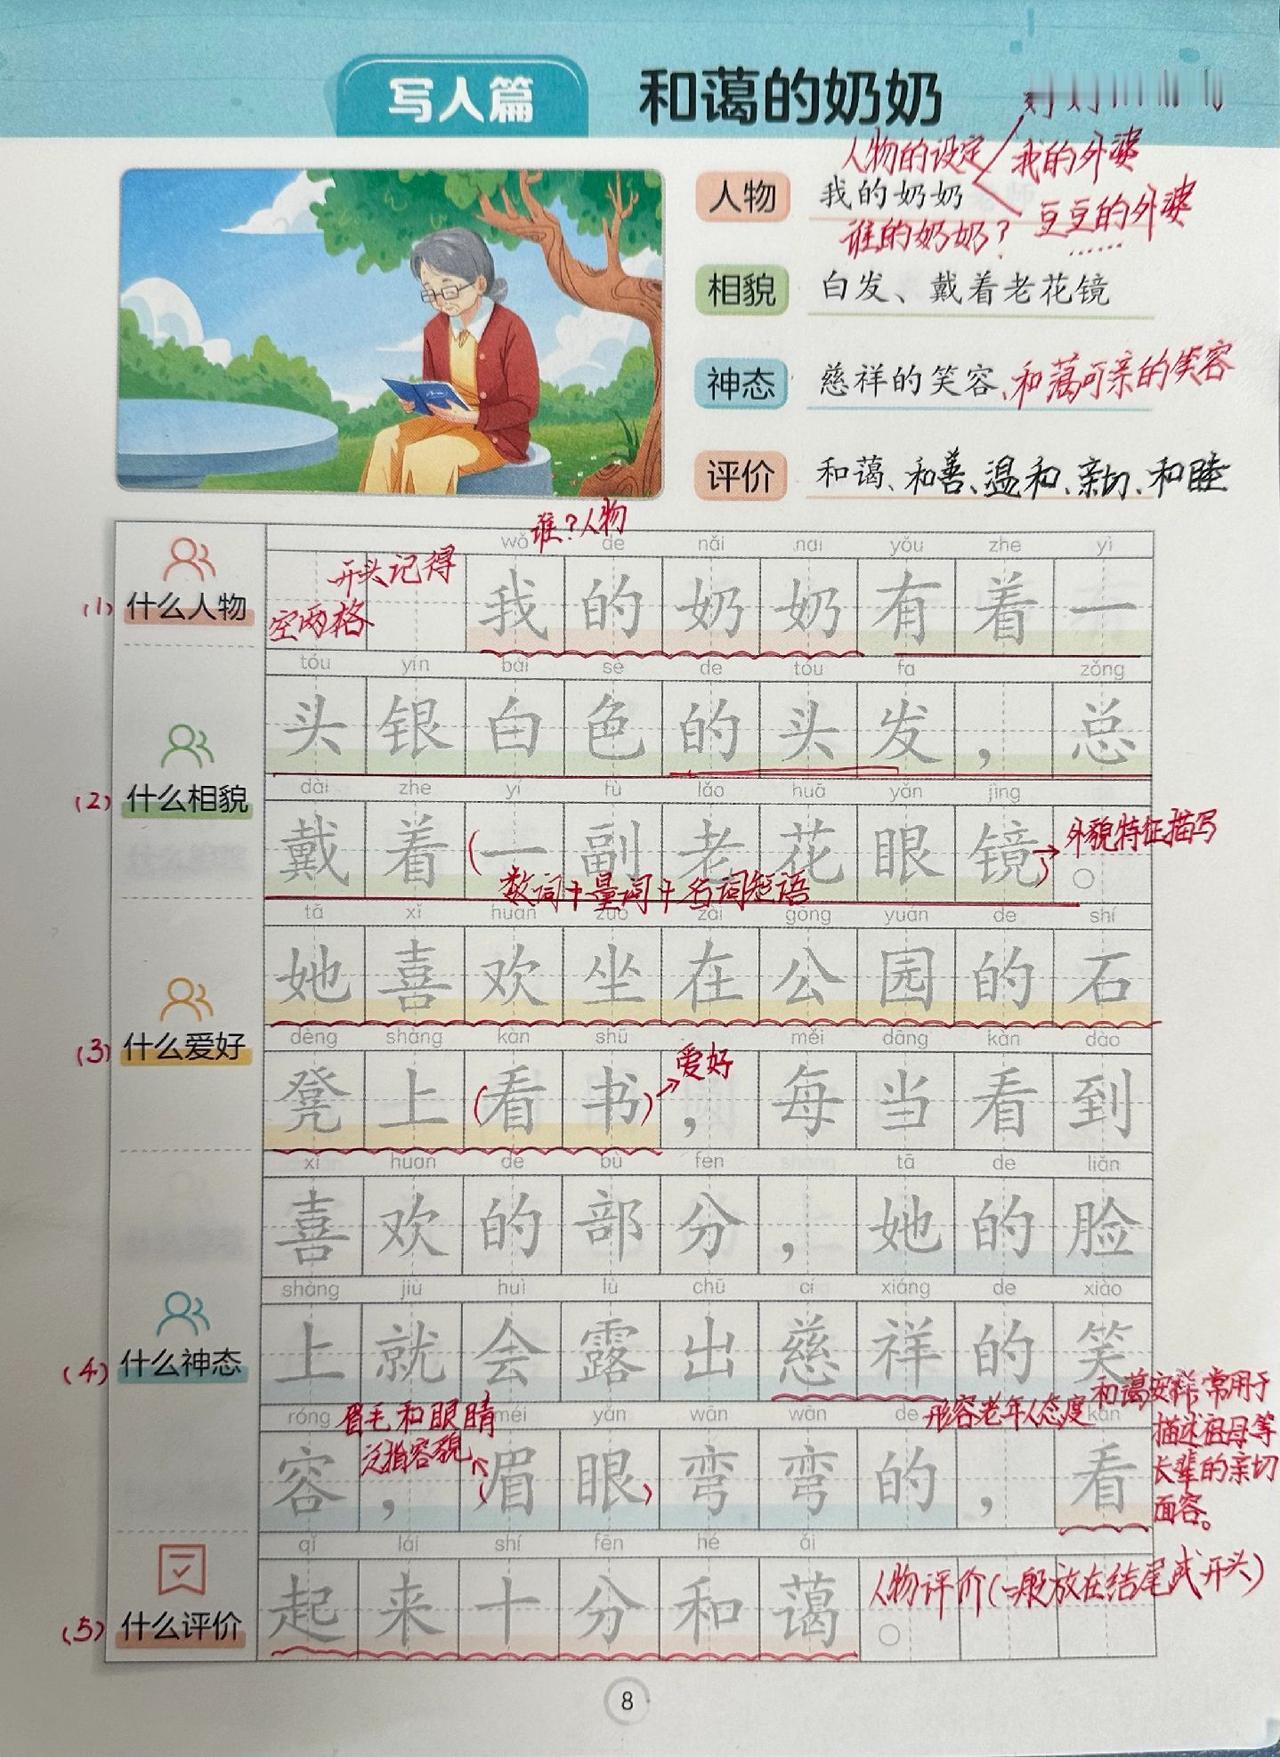 写人篇 和蔼的奶奶
人物的设定 我的外婆
人物 我的奶奶
谁的奶奶？ 豆豆的外婆
……
相貌 白发、戴着老花镜
神态 慈祥的笑容、和蔼可亲的笑容
评价 和蔼、和善、温和、亲切、和睦
谁？人物
wǒ de nǎi nai yǒu zhe yì
开头记得
空两格
(1) 什么人物 我的奶奶有着一
tóu yín bái sè de tóu fa zǒng
头银白色的头发，总
(2) 什么相貌
dài zhe yí fù lǎo huā yǎn jìng
戴着(一副老花眼镜)。 外貌特征描写
数词+量词+名词短语
tā xǐ huan zuò zài gōng yuán de shí
她喜欢坐在公园的石
(3) 什么爱好
dèng shàng kàn shū měi dāng kàn dào
凳上(看书)，每当看到
爱好
xǐ huan de bù fen tā de liǎn
喜欢的部分，她的脸
shàng jiù huì lù chū cí xiáng de xiào
(4) 什么神态 上就会露出慈祥的笑
形容老年人态度和蔼安祥,常用于描述祖母等长辈的亲切面容。
róng méi yǎn wān wān de kàn
眉毛和眼睛
泛指容貌
容，(眉眼)弯弯的，看
qǐ lái shí fēn hé ǎi
(5) 什么评价 起来十分和蔼。
人物评价(一般放在结尾或开头)
8